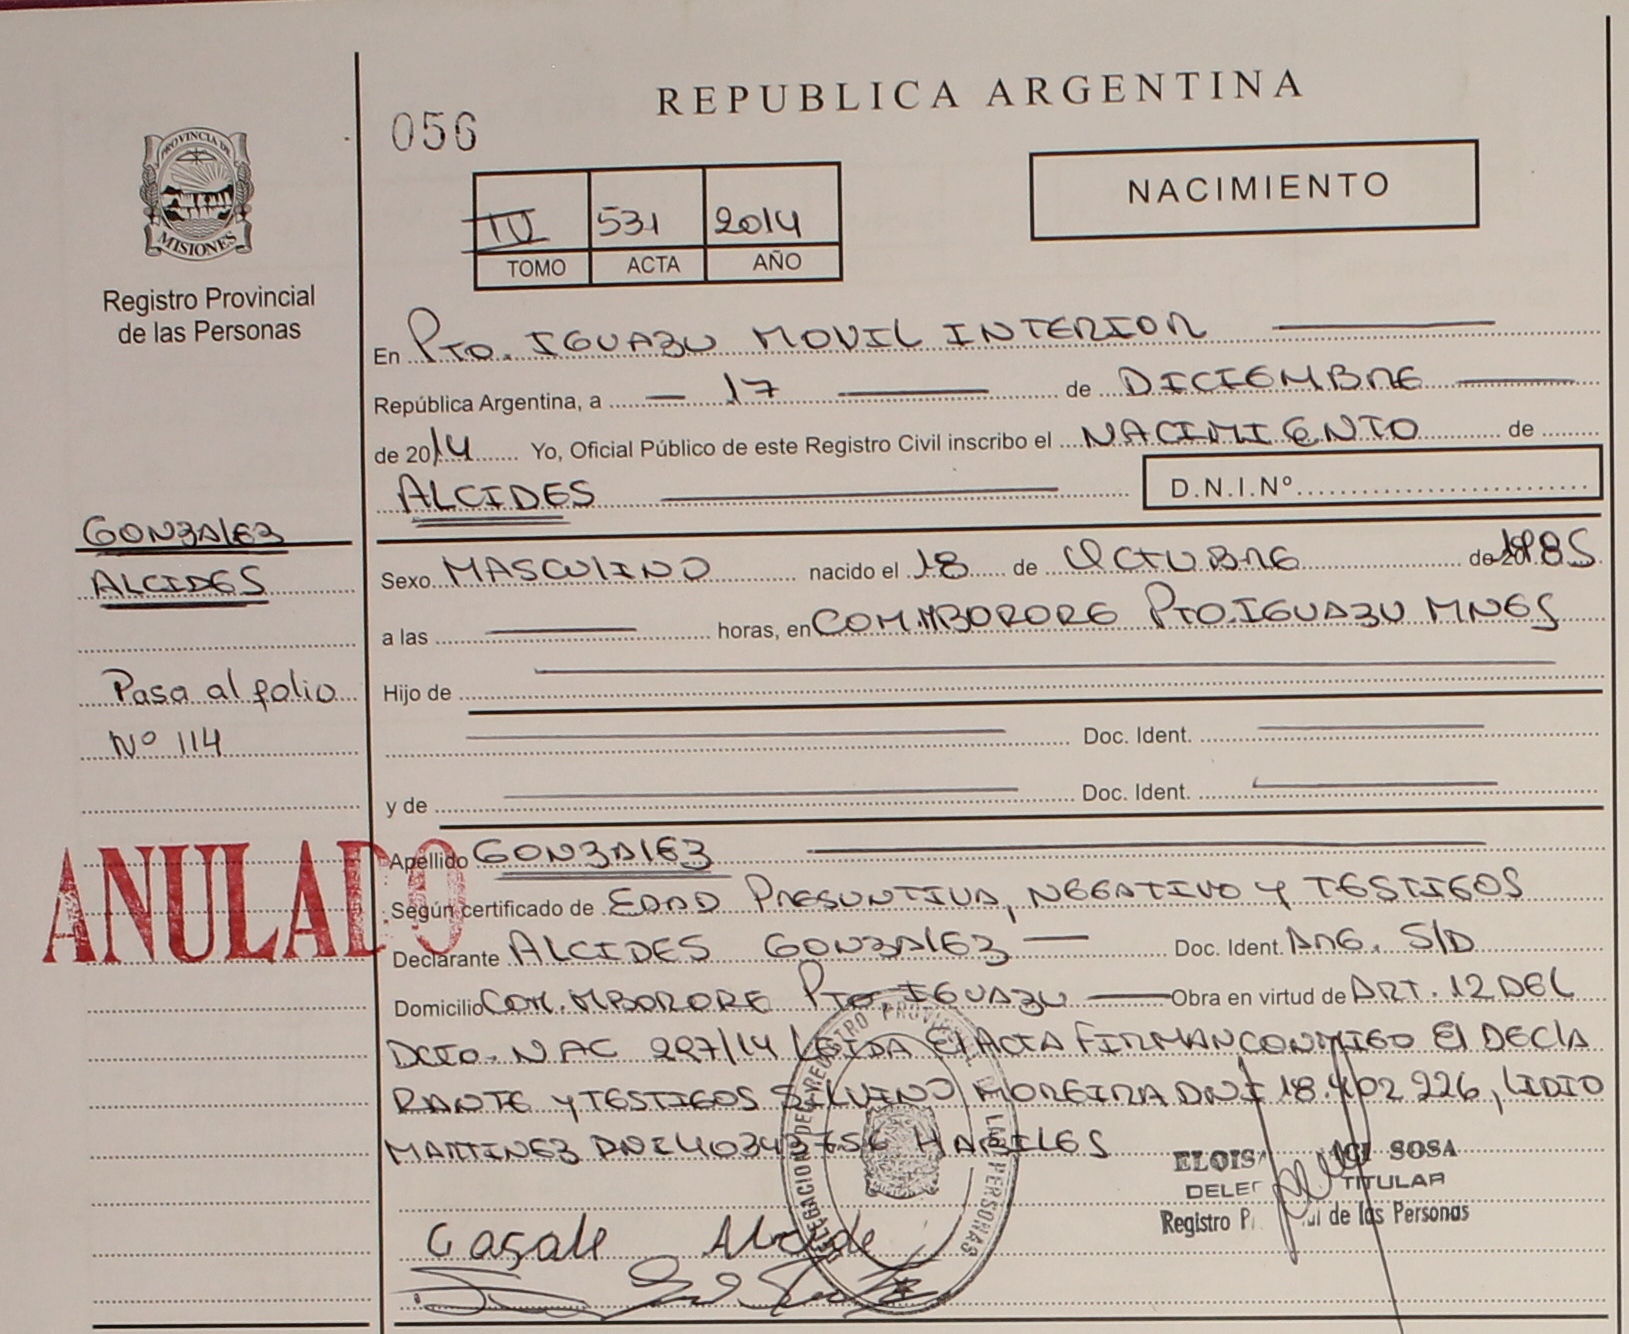 REPUBLICA ARGENTINA
056
PROVINCIA DE
MISIONES
Registro Provincial
de las Personas
531 2014
TOMO ACTA AÑO
NACIMIENTO
En Pto. IGUAZU MOVIL INTERIOR
República Argentina, a 17 de DICIEMBRE
de 2014 Yo, Oficial Público de este Registro Civil inscribo el NACIMIENTO de
ALCIDES D.N.I.Nº
GONZALEZ
ALCIDES
Pasa al folio
Nº 114
Sexo MASCULINO nacido el 18 de OCTUBRE de 1985
a las horas, en COM.MBORORE Pto.IGUAZU MNES
Hijo de
Doc. Ident.
y de Doc. Ident.
ANULADO
Apellido GONZALEZ
Según certificado de EDAD PRESUNTIVA, NEGATIVO Y TESTIGOS
Declarante ALCIDES GONZALEZ Doc. Ident. ARG. S/D
Domicilio COM. MBORORE Pto. IGUAZU Obra en virtud de ART. 12 DEL
DCTO. NAC 297/14 LEIDA El ACTA FIRMAN CONMIGO El DECLA
RANTE Y TESTIGOS SILVINO MOREIRA DNI 18.402 226, LIDIO
MARTINEZ DNI 40343756 HABILES
SOSA
TITULAR
Registro de las Personas
DELEGACION DEL REGISTRO PROVINCIAL DE LAS PERSONAS